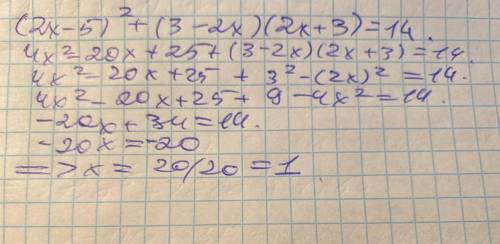 (2x-5)² + (3-2x)(2x+3)=14.
4x²-20x+25+(3-2x)(2x+3)=14.
4x²-20x+25 + 3²-(2x)²=14.
4x²-20x+25+9-4x²=14.
-20x+34=14.
-20x=-20
=>x= 20/20=1